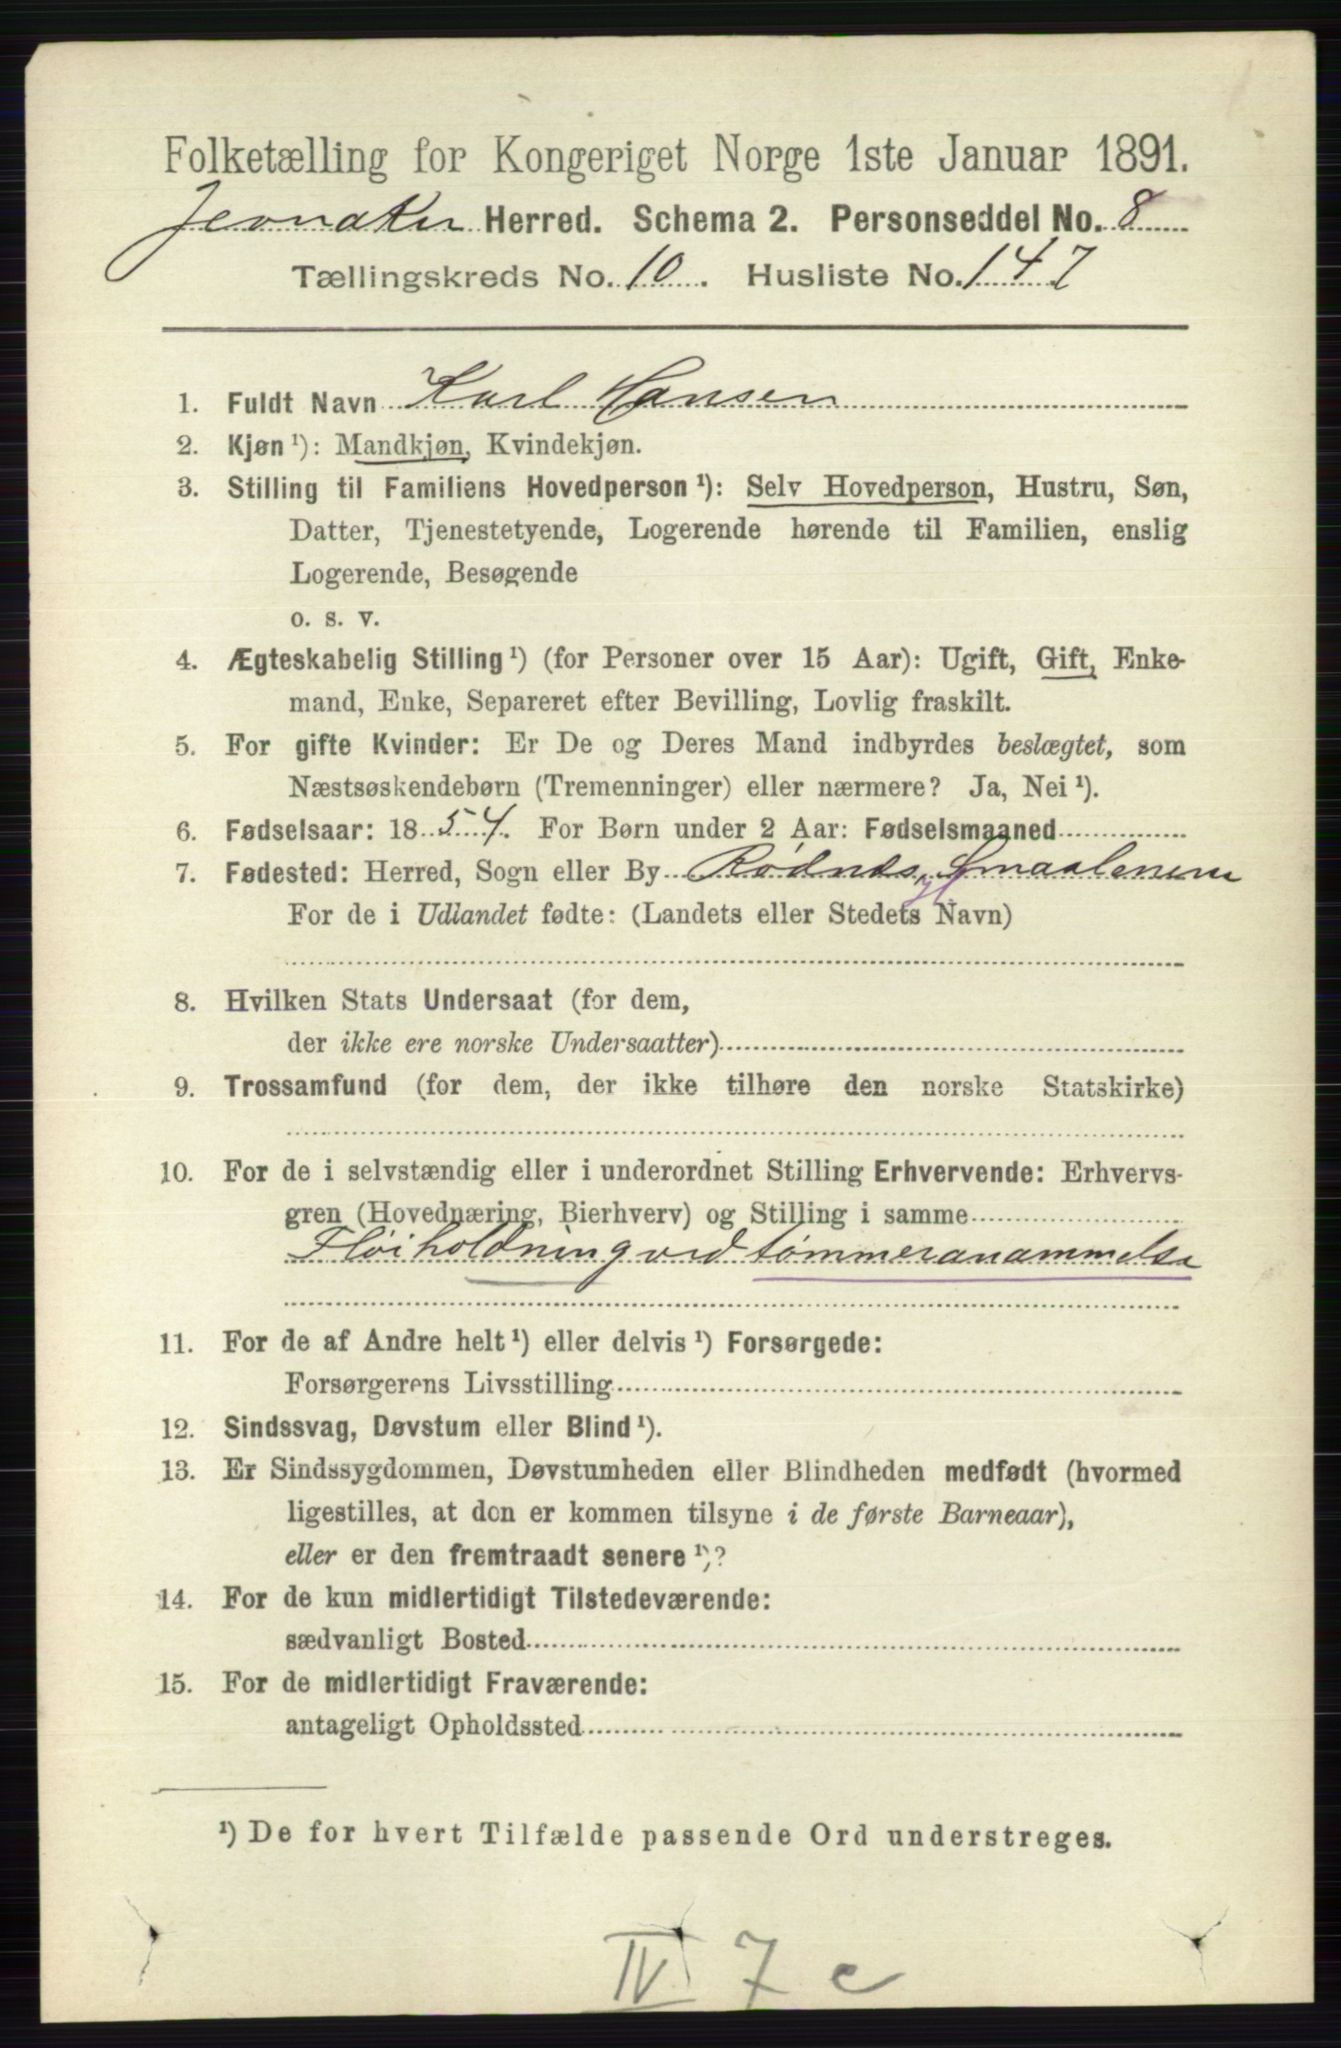 Folketælling for Kongeriget Norge 1ste Januar 1891.
Jevnaker Herred. Schema 2. Personseddel No. 8
Tællingskreds No. 10. Husliste No. 147
1. Fuldt Navn Karl Hansen
2. Kjøn¹): Mandkjøn, Kvindekjøn.
3. Stilling til Familiens Hovedperson¹): Selv Hovedperson, Hustru, Søn,
Datter, Tjenestetyende, Logerende hørende til Familien, enslig
Logerende, Besøgende
o. s. v.
4. Ægteskabelig Stilling¹) (for Personer over 15 Aar): Ugift, Gift, Enke-
mand, Enke, Separeret efter Bevilling, Lovlig fraskilt.
5. For gifte Kvinder: Er De og Deres Mand indbyrdes beslægtet, som
Næstsøskendebørn (Tremenninger) eller nærmere? Ja, Nei¹).
6. Fødselsaar: 1854. For Børn under 2 Aar: Fødselsmaaned
7. Fødested: Herred, Sogn eller By Rødnes, Smaalenene
For de i Udlandet fødte: (Landets eller Stedets Navn)
8. Hvilken Stats Undersaat (for dem,
der ikke ere norske Undersaatter)
9. Trossamfund (for dem, der ikke tilhøre den norske Statskirke)
10. For de i selvstændig eller i underordnet Stilling Erhvervende: Erhvervs-
gren (Hovednæring, Bierhverv) og Stilling i samme
Fløiholdning ved tømmeranammelse
11. For de af Andre helt¹) eller delvis¹) Forsørgede:
Forsørgerens Livsstilling
12. Sindssvag, Døvstum eller Blind¹).
13. Er Sindssygdommen, Døvstumheden eller Blindheden medfødt (hvormed
ligestilles, at den er kommen tilsyne i de første Barneaar),
eller er den fremtraadt senere¹)?
14. For de kun midlertidigt Tilstedeværende:
sædvanligt Bosted
15. For de midlertidigt Fraværende:
antageligt Opholdssted
¹) De for hvert Tilfælde passende Ord understreges.
IV 7 c